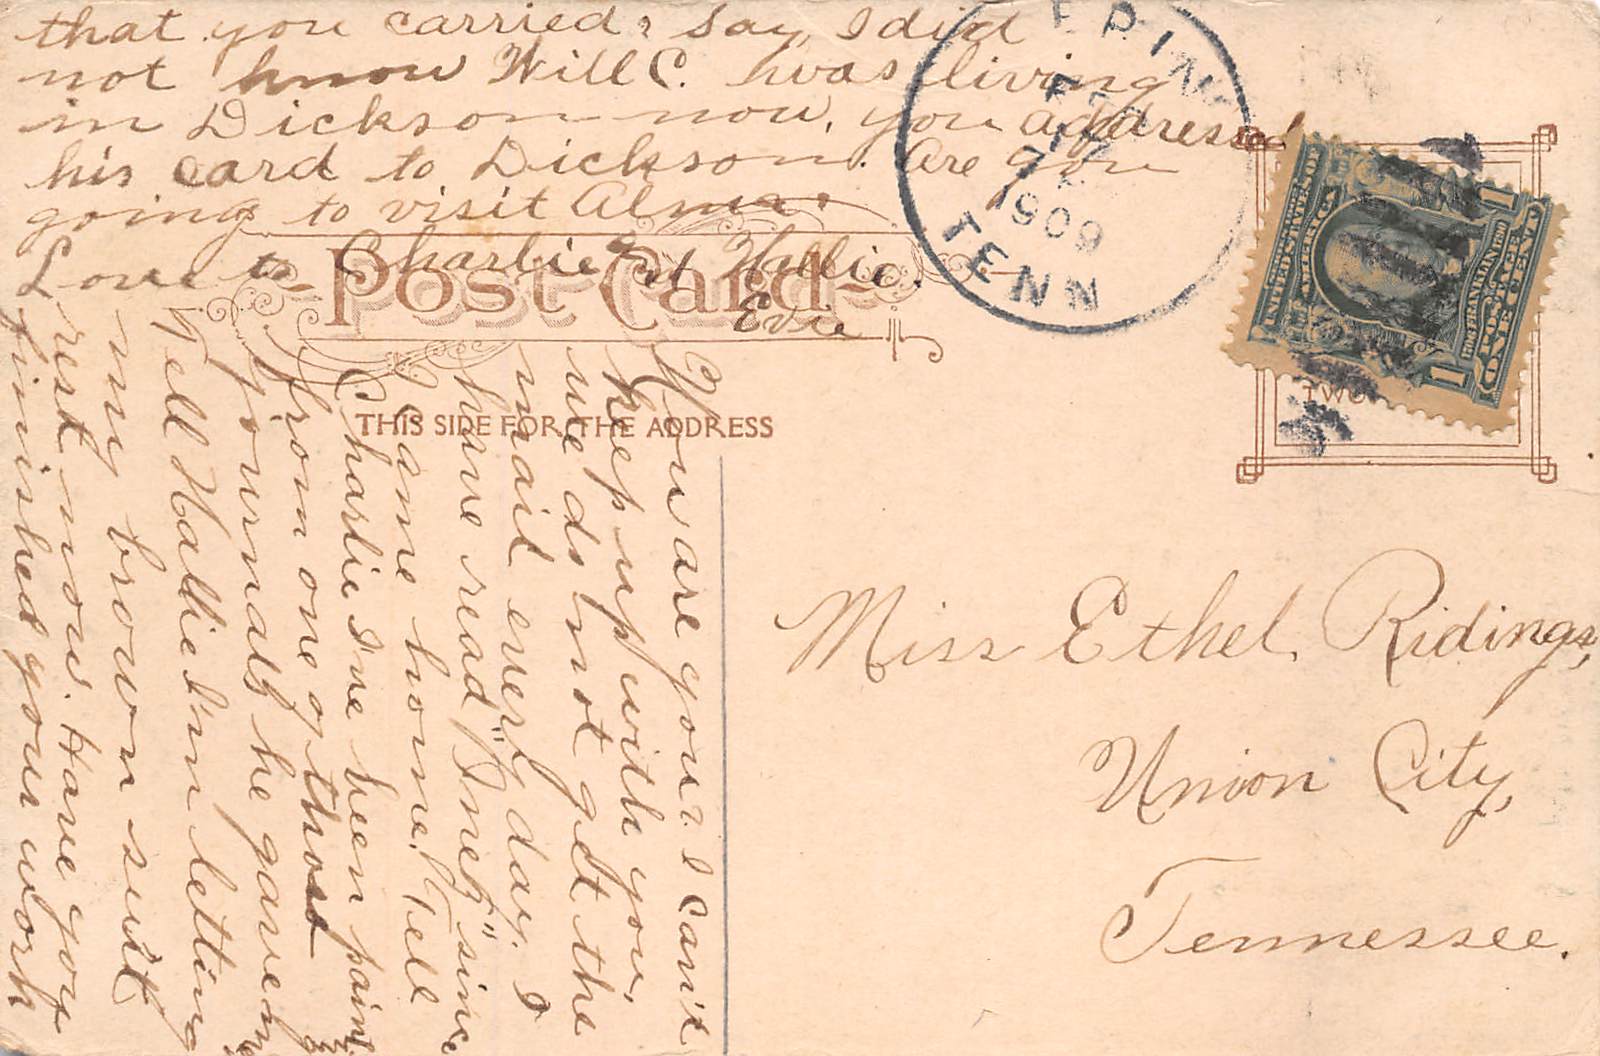 You are you? I can't
keep up with you,
we do not get the
mail every day. I
have read "Inez" since
I came home. Tell
Charlie I've been paint
from one of those
journals he gave m
Tell Hallie I'm letting
my brown suit
rest now. Have you
finished your work
that you carried? Say, I did
not know Will C. was living
in Dickson now, you addressed
his card to Dickson. Are you
going to visit Alma?
Love to Charlie and Hallie.
Evie
Post Card
THIS SIDE FOR THE ADDRESS
EPIN
FEB
1909
TENN
UNITED STATES OF AMERICA
FRANKLIN
POSTAGE
ONE CENT
1 1
TWO
Miss Ethel Ridings,
Union City,
Tennessee.